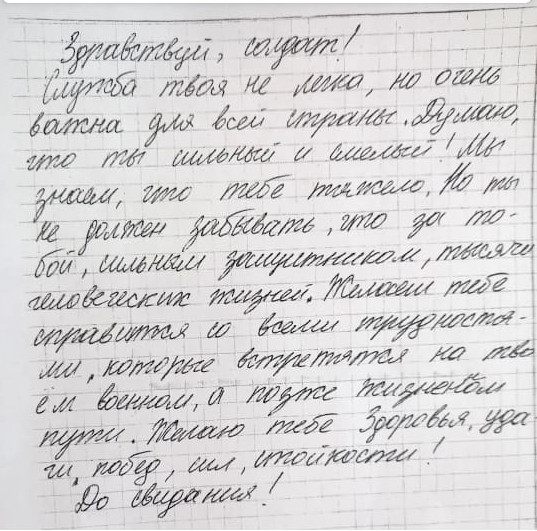 Здравствуй, солдат!
Служба твоя не легка, но очень
важна для всей страны. Думаю,
что ты сильный и смелый! Мы
знаем, что тебе тяжело. Но ты
не должен забывать, что за то-
бой, сильным защитником, тысячи
человеческих жизней. Желаем тебе
справится со всеми трудностя-
ми, которые встретятся на тво
ём военном, а позже жизненом
пути. Желаю тебе Здоровья, уда-
чи, побед, сил, стойкости!
До свидания!